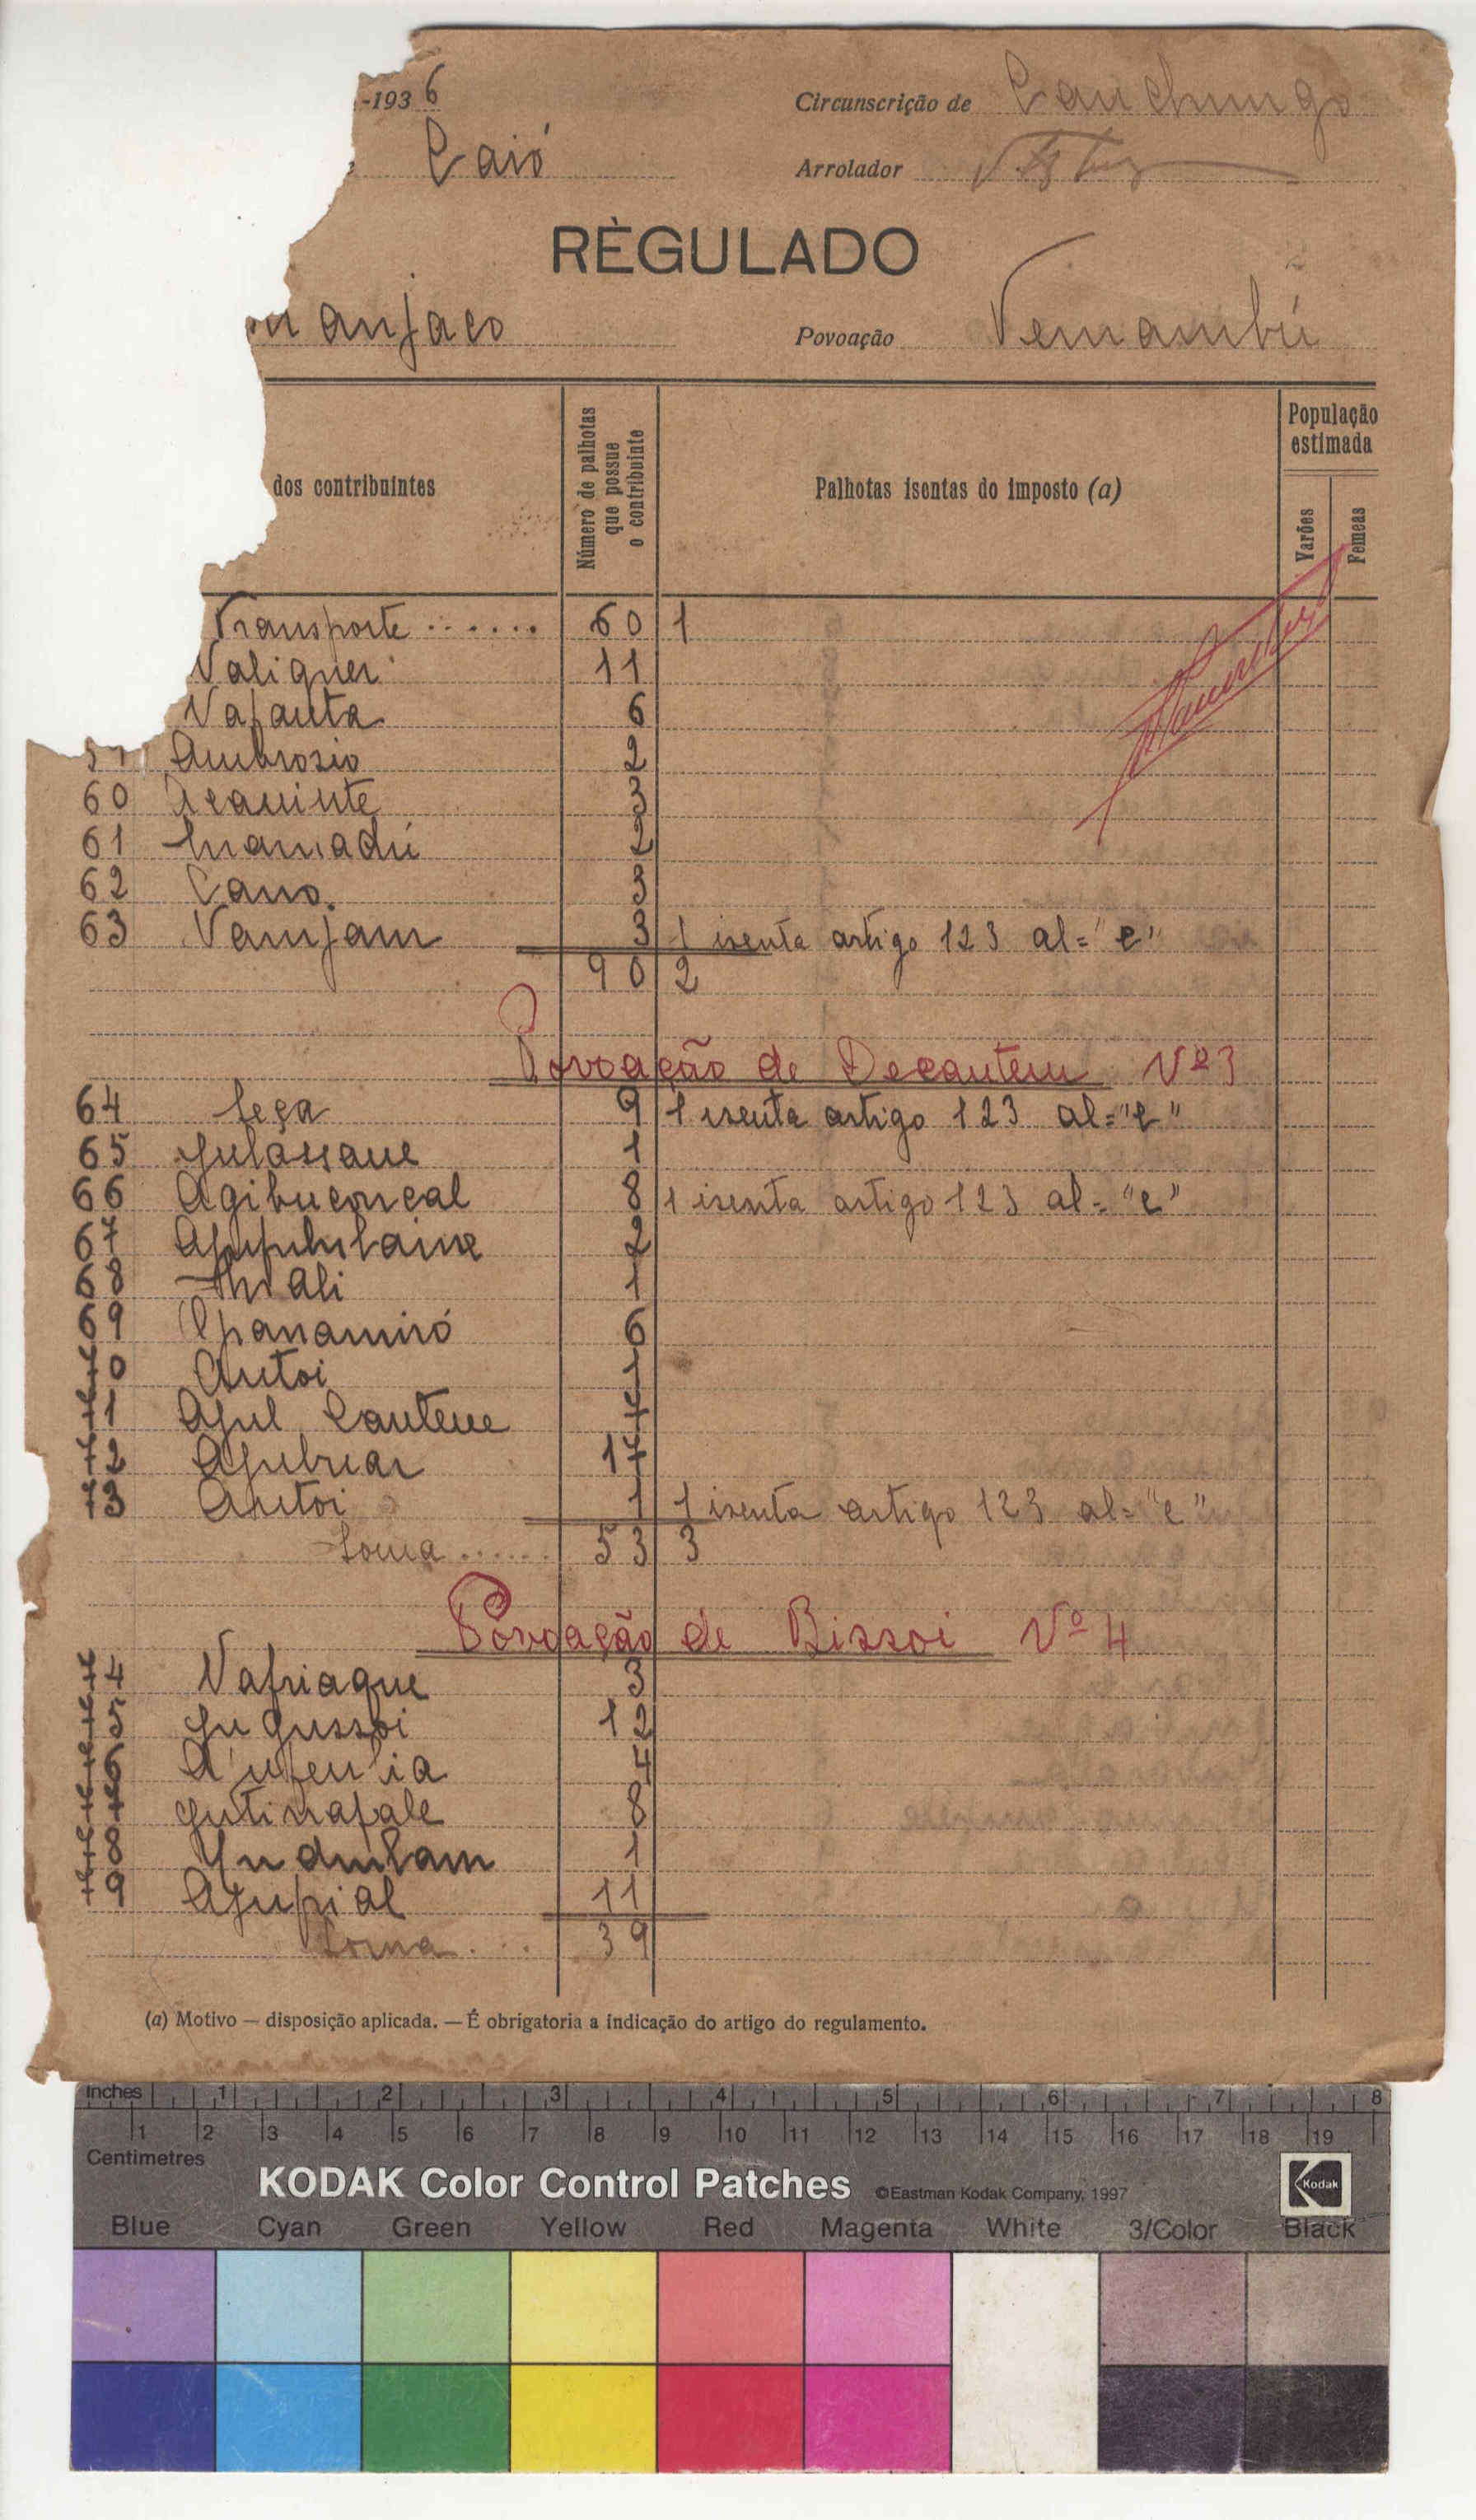 -1936 Circunscrição de Canchungo
Caió Arrolador
RÈGULADO
manjaco Povoação Vemambú
dos contribuintes
Número de palhotas que possue o contribuinte
Palhotas isentas do imposto (a)
População estimada
Varões Femeas
Transporte ....... 60 1
Naliquer 11
Nafanta 6
Ambrosio 2
60 3
61 Mamadú 2
62 Cano. 3
63 Namjam 3 1 isenta artigo 123 al="e"
90 2
Povoação de Decantem Nº3
64 Seça 9 1 isenta artigo 123 al="e"
65 1
66 Agibuconcal 8 1 isenta artigo 123 al="e"
67 2
68 Mali 1
69 6
70 Antoi 1
71 Apul Cantene 7
72 17
73 Antoi 1 1 isenta artigo 123 al="e"
Soma ...... 53 3
Povoação de Bissoi Nº 4
74 Nafriaque 3
75 12
76
77 8
78 1
79 Ajupial 11
Soma .... 39
(a) Motivo — disposição aplicada. — É obrigatoria a indicação do artigo do regulamento.
Inches 1 2 3 4 5 6 7 8
1 2 3 4 5 6 7 8 9 10 11 12 13 14 15 16 17 18 19
Centimetres
KODAK Color Control Patches ©Eastman Kodak Company, 1997 Kodak
Blue Cyan Green Yellow Red Magenta White 3/Color Black